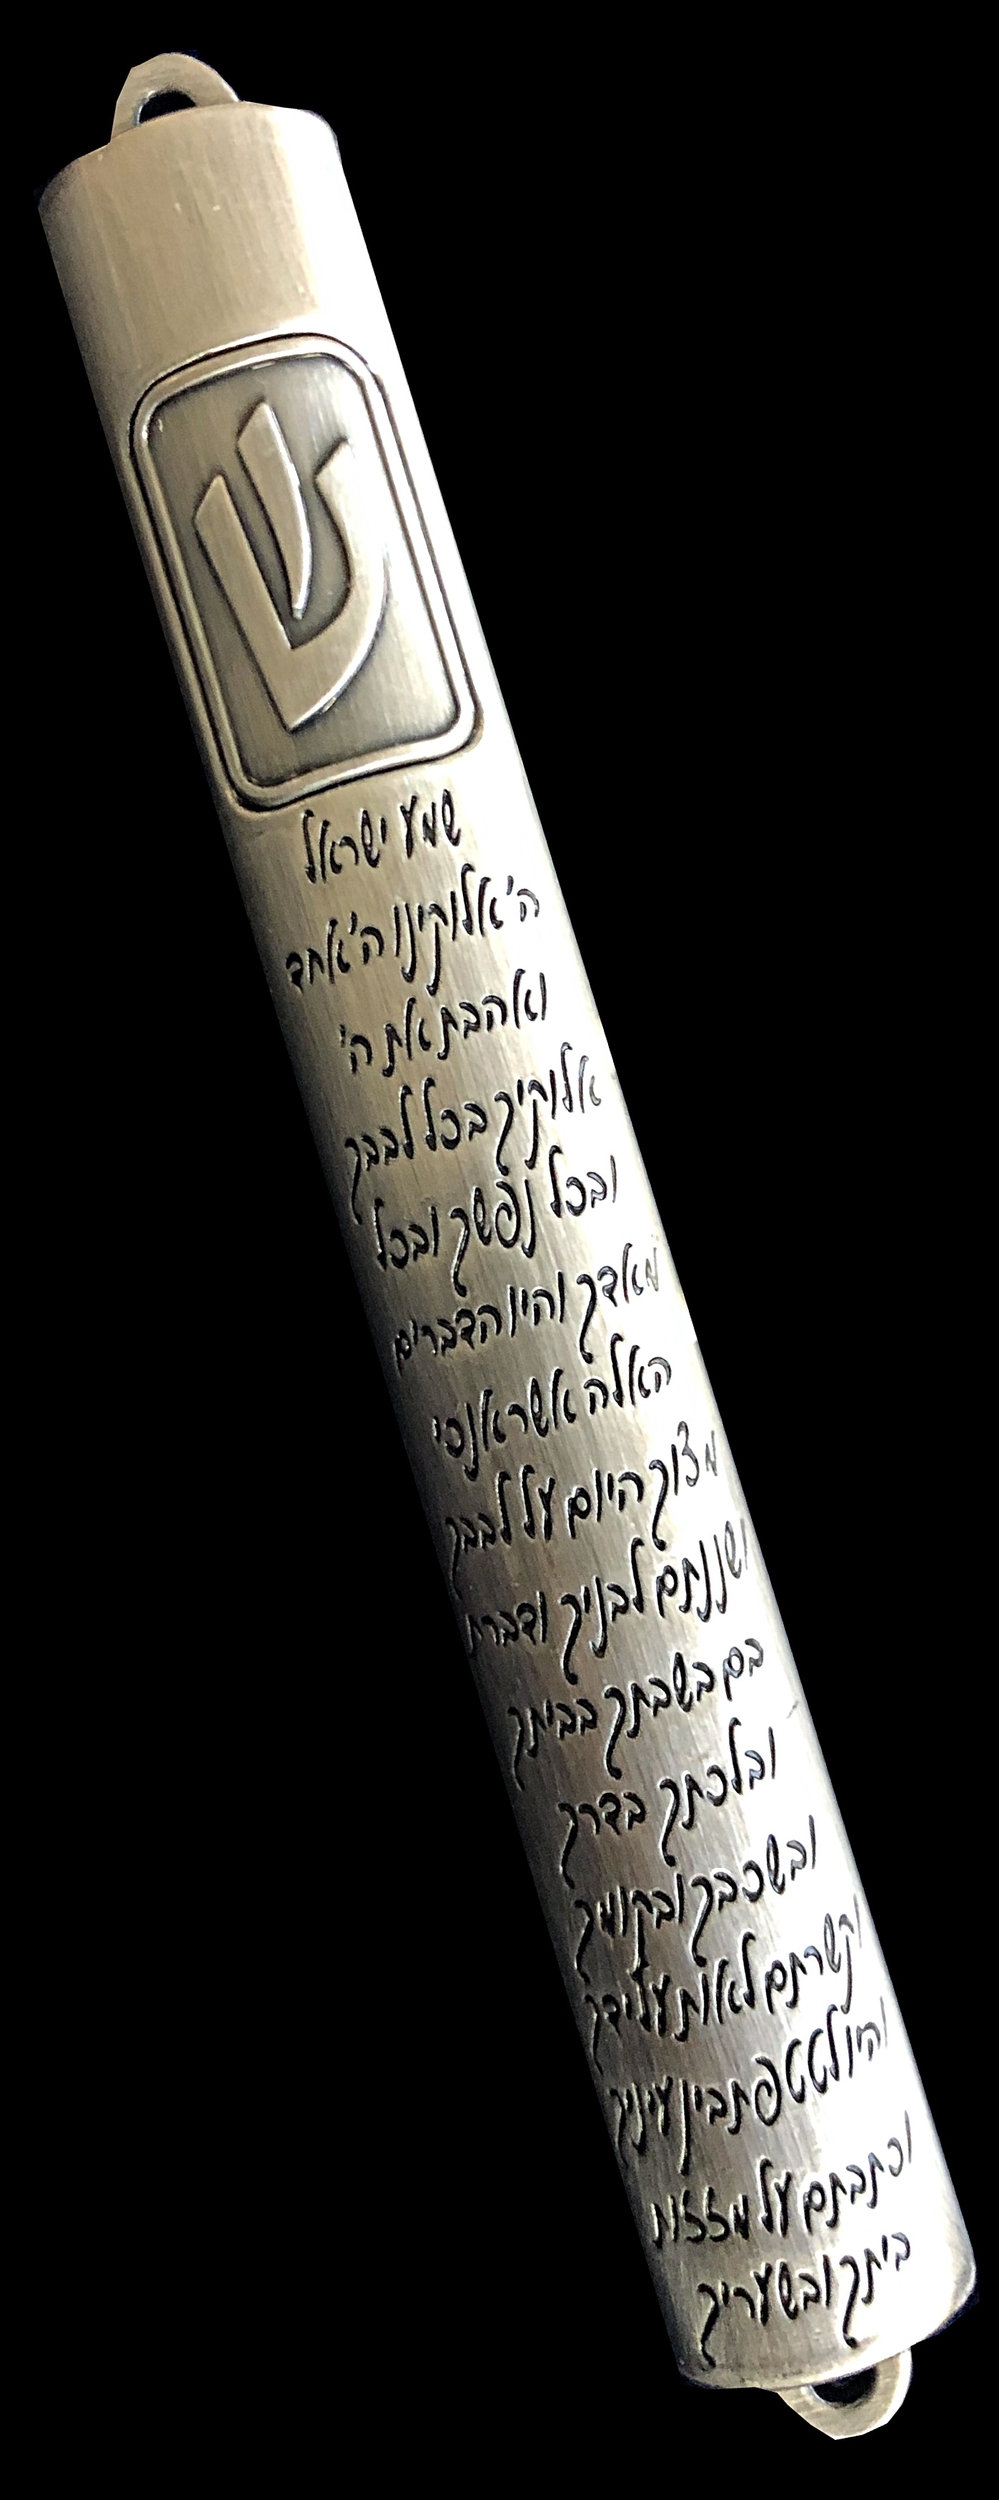 ש
שמע ישראל
ה'אלוקינו ה'אחד
ואהבת את ה'
אלוקיך בכל לבבך
ובכל נפשך ובכל
מאדך והיו הדברים
האלה אשר אנכי
מצוך היום על לבבך
ושננתם לבניך ודברת
בם בשבתך בביתך
ובלכתך בדרך
ובשכבך ובקומך
וקשרתם לאות על ידך
והיו לטטפת בין עיניך
וכתבתם על מזזות
ביתך ובשעריך